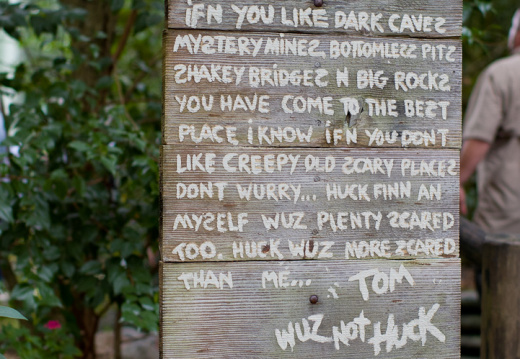 iFN YOU LIKE DARK CAVES
MYSTERY MINES BOTTOMLESS PITS
SHAKEY BRIDGES N BIG ROCKS
YOU HAVE COME TO THE BEST
PLACE I KNOW iFN YOU DON'T
LIKE CREEPY OLD SCARY PLACES
DONT WURRY... HUCK FINN AN
MYSELF WUZ PLENTY SCARED
TOO. HUCK WUZ MORE SCARED
THAN ME... TOM
WUZ NOT HUCK